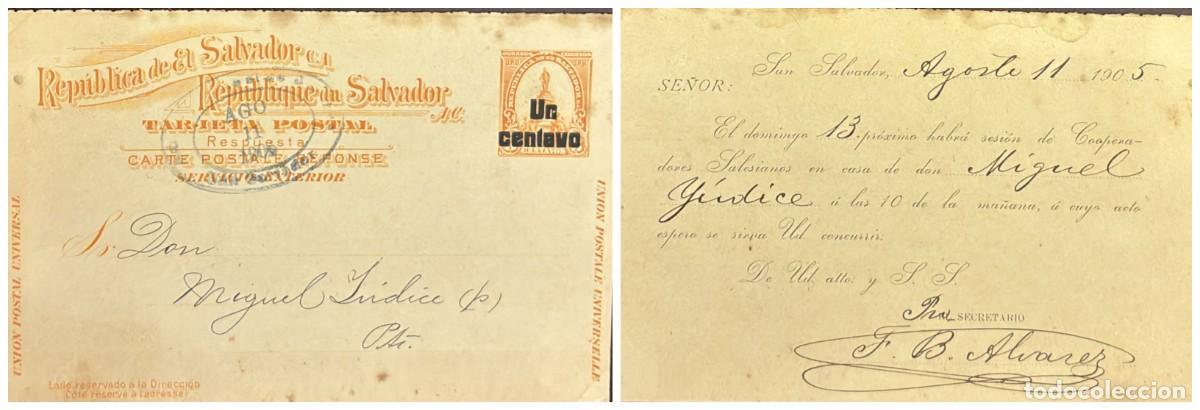 República de El Salvador C.A.
République du Salvador A.C.
TARJETA POSTAL
Respuesta
CARTE POSTALE REPONSE
SERVICIO EXTERIOR
Un
centavo
AGO
11
UNION POSTAL UNIVERSAL
UNION POSTALE UNIVERSELLE
Sr. Don
Miguel Yúdice (p)
Pte.
Lado reservado a la Dirección
(Coté réservé a l'adresse)
San Salvador, Agosto 11 1905.
SEÑOR:
El domingo 13 próximo habrá sesión de Coopera-
dores Salesianos en casa de don Miguel
Yúdice á las 10 de la mañana, á cuyo acto
espero se sirva Ud. concurrir.
De Ud. atto. y S. S.
SECRETARIO
F. B. Alvarez
todocoleccion